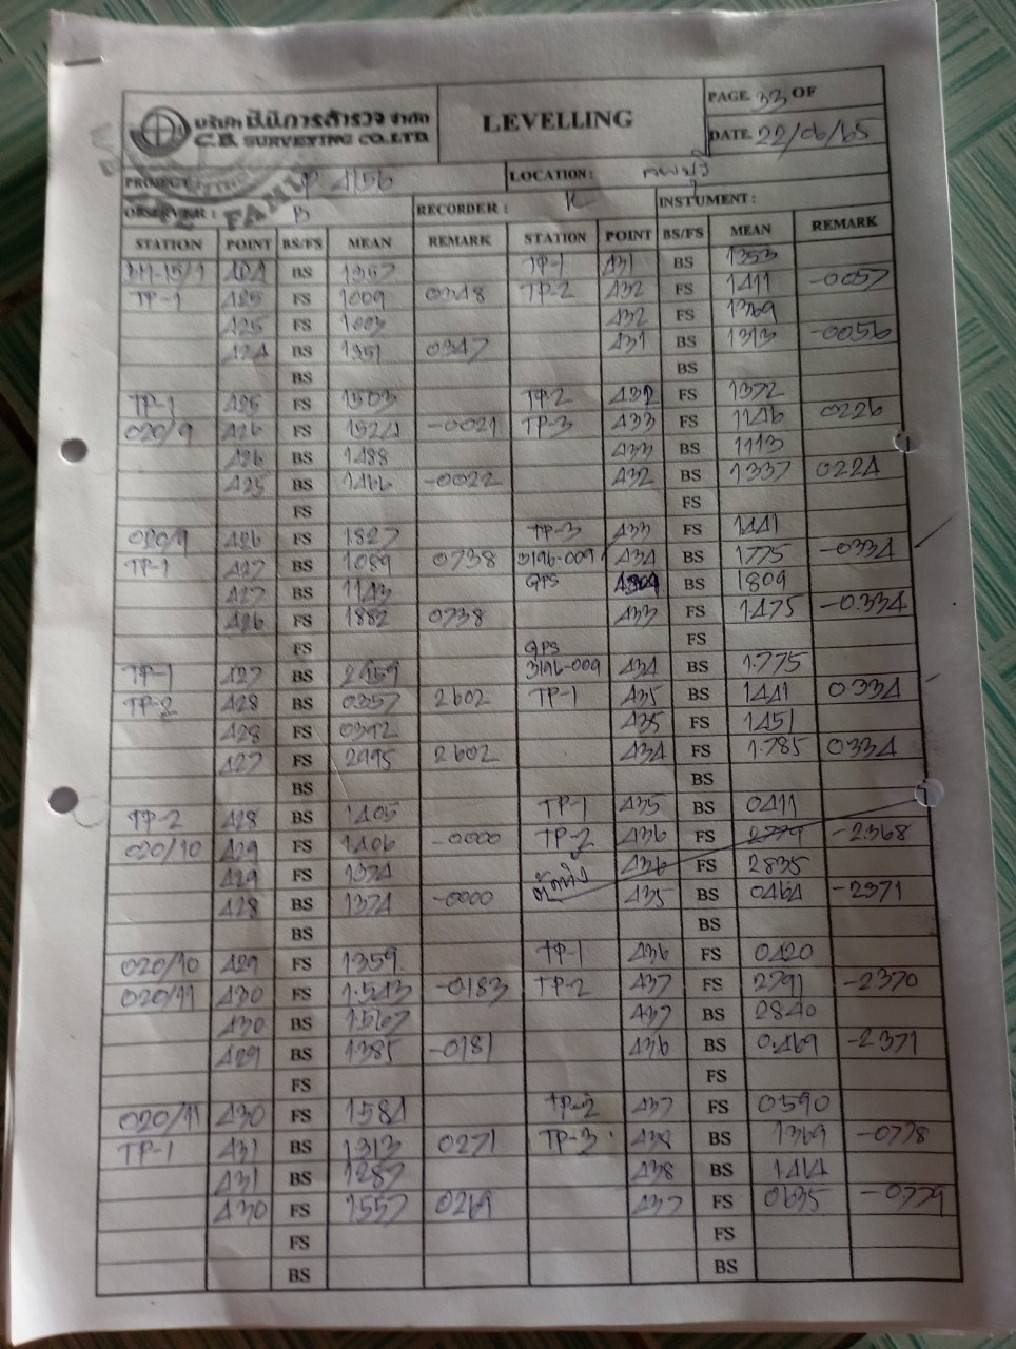 บริษัท ซี.บี.การสำรวจ จำกัด
C.B. SURVEYING CO.,LTD.
LEVELLING
PAGE 33 OF
DATE 22/06/65
PROJECT 4156
LOCATION: ลพบุรี
OBSERVER: B RECORDER: K INSTUMENT:
STATION POINT BS/FS MEAN REMARK STATION POINT BS/FS MEAN REMARK
424 BS 1357 TP-1 431 BS 1353
TP-1 425 FS 1009 0348 TP-2 432 FS 1411 -0057
425 FS 1003 432 FS 1369
424 BS 1351 0347 431 BS 1313 -0056
BS BS
TP-1 425 FS 1503 TP-2 432 FS 1372
020/9 426 FS 1524 -0021 TP-3 433 FS 1146 0226
426 BS 1488 433 BS 1113
425 BS 1466 -0022 432 BS 1337 0224
FS FS
020/9 426 FS 1827 TP-3 433 FS 1441
TP-1 427 BS 1089 0738 3196-009 434 BS 1775 -0334
427 BS 1143 GPS BS 1809
426 FS 1882 0738 433 FS 1475 -0.334
FS GPS FS
TP-1 427 BS 2959 3196-009 434 BS 1.775
TP-2 428 BS 0357 2602 TP-1 435 BS 1441 0334
428 FS 0392 435 FS 1451
427 FS 2995 2602 434 FS 1.785 0334
BS BS
TP-2 428 BS 1405 TP-1 435 BS 0411
020/10 429 FS 1406 -0000 TP-2 436 FS 2779 -2.368
429 FS 1374 436 FS 2835
428 BS 1374 -0000 435 BS 0464 -2371
BS BS
020/10 429 FS 1359 TP-1 436 FS 0420
020/11 430 FS 1.543 -0183 TP-2 437 FS 2791 -2370
430 BS 1567 437 BS 2840
429 BS 1385 -0181 436 BS 0.469 -2371
FS FS
020/11 430 FS 1584 TP-2 437 FS 0590
TP-1 431 BS 1313 0271 TP-3 438 BS 1369 -0778
431 BS 1287 438 BS 1414
430 FS 1557 0269 437 FS 0635 -0779
FS FS
BS BS